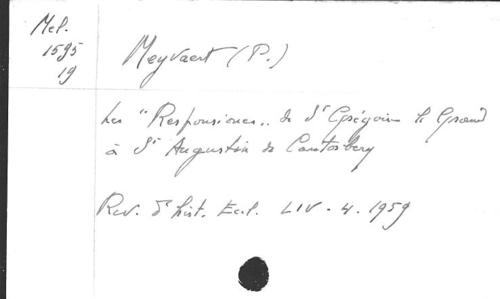 Mel.
1595
19
Meyvaert (P.)
Les "Responsiones" de St Grégoire le Grand
à St Augustin de Cantorbery
Rev. d'hist. Eccl. LIV - 4. 1959